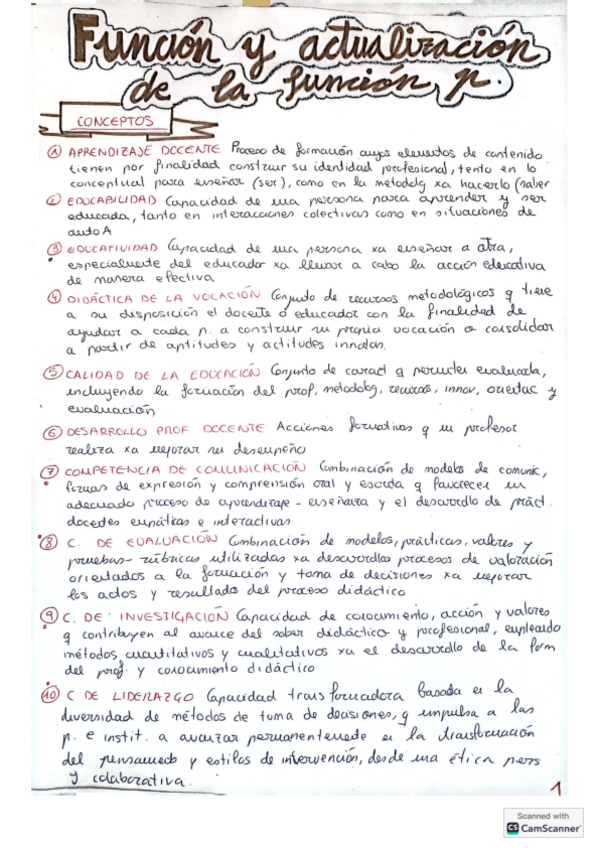 Función y actualización
de la función p.
CONCEPTOS
① APRENDIZAJE DOCENTE Proceso de formación cuyos elementos de contenido
tienen por finalidad construir su identidad profesional, tanto en lo
conceptual para enseñar (ser), como en la metodolg xa hacerlo (saber
② EDUCABILIDAD Capacidad de una persona para aprender y ser
educada, tanto en interacciones colectivas como en situaciones de
auto A
③ EDUCATIVIDAD Capacidad de una persona xa enseñar a otra,
especialmente del educador xa llevar a cabo la acción educativa
de manera efectiva
④ DIDÁCTICA DE LA VOCACIÓN Conjunto de recursos metodológicos q tiene
a su disposición el docente o educador con la finalidad de
ayudar a cada p. a construir su propia vocación o consolidar
a partir de aptitudes y actitudes innatas.
⑤ CALIDAD DE LA EDUCACIÓN Conjunto de caract q permiten evaluarla,
incluyendo la formación del prof, metodolg, recursos, innov, orientac y
evaluación
⑥ DESARROLLO PROF DOCENTE Acciones formativas q un profesor
realiza xa mejorar su desempeño
⑦ COMPETENCIA DE COMUNICACIÓN Combinación de modelos de comunic,
formas de expresión y comprensión oral y escrita q favorecen un
adecuado proceso de aprendizaje - enseñanza y el desarrollo de práct.
docentes empáticas e interactivas
⑧ C. DE EVALUACIÓN Combinación de modelos, prácticas, valores y
pruebas- rúbricas utilizadas xa desarrollar procesos de valoración
orientados a la formación y toma de decisiones xa mejorar
los actos y resultado del proceso didáctico
⑨ C. DE INVESTIGACIÓN Capacidad de conocimiento, acción y valores
q contribuyen al avance del saber didáctico y profesional, empleando
métodos cuantitativos y cualitativos xa el desarrollo de la form
del prof. y conocimiento didáctico
⑩ C DE LIDERAZGO Capacidad transformadora basada en la
diversidad de métodos de toma de decisiones, q impulsa a las
p. e instit. a avanzar permanentemente en la transformación
del pensamiento y estilos de intervención, desde una ética pers
y colaborativa.
1
Scanned with
CS CamScanner